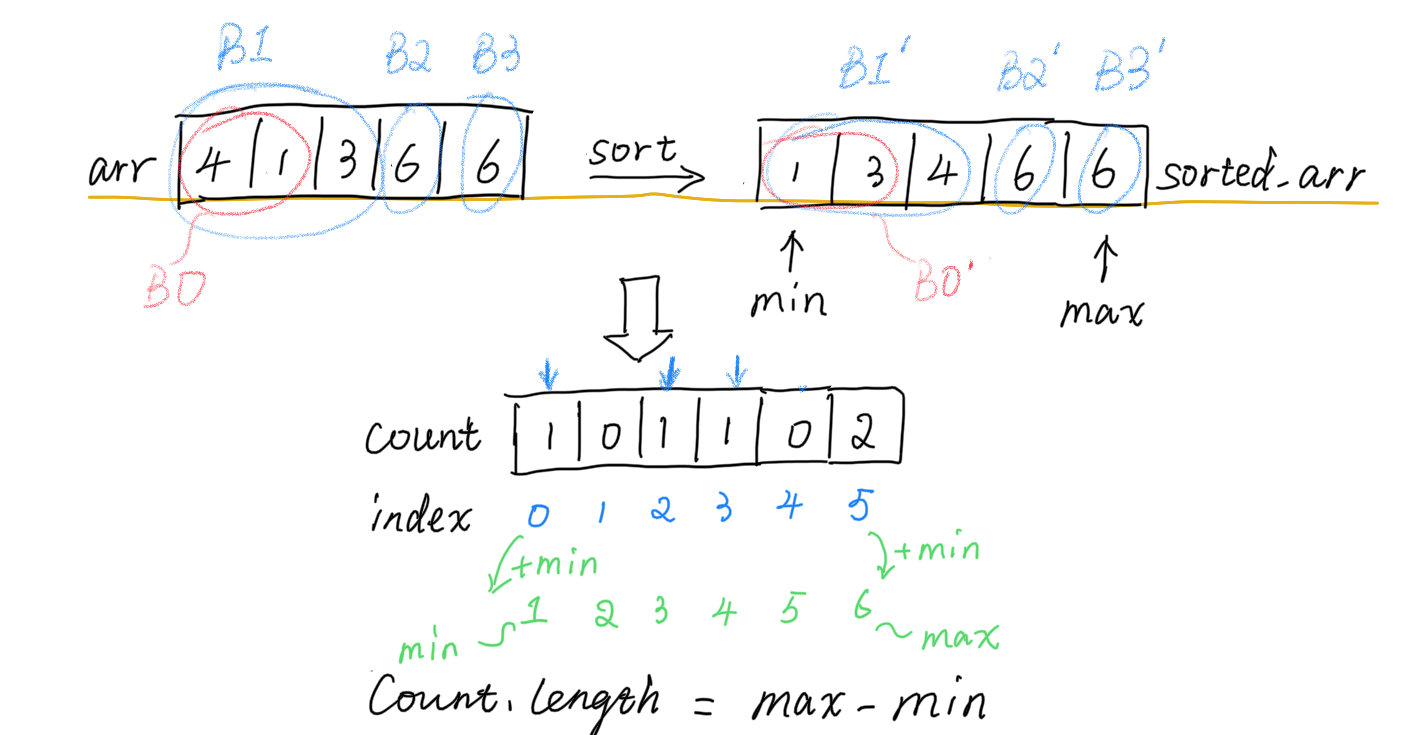 B1 B2 B3
B1' B2' B3'
arr 4 1 3 6 6
sort
1 3 4 6 6 sorted_arr
B0
B0'
min
max
count 1 0 1 1 0 2
index 0 1 2 3 4 5
+min
+min
1 2 3 4 5 6
min
max
Count.length = max - min